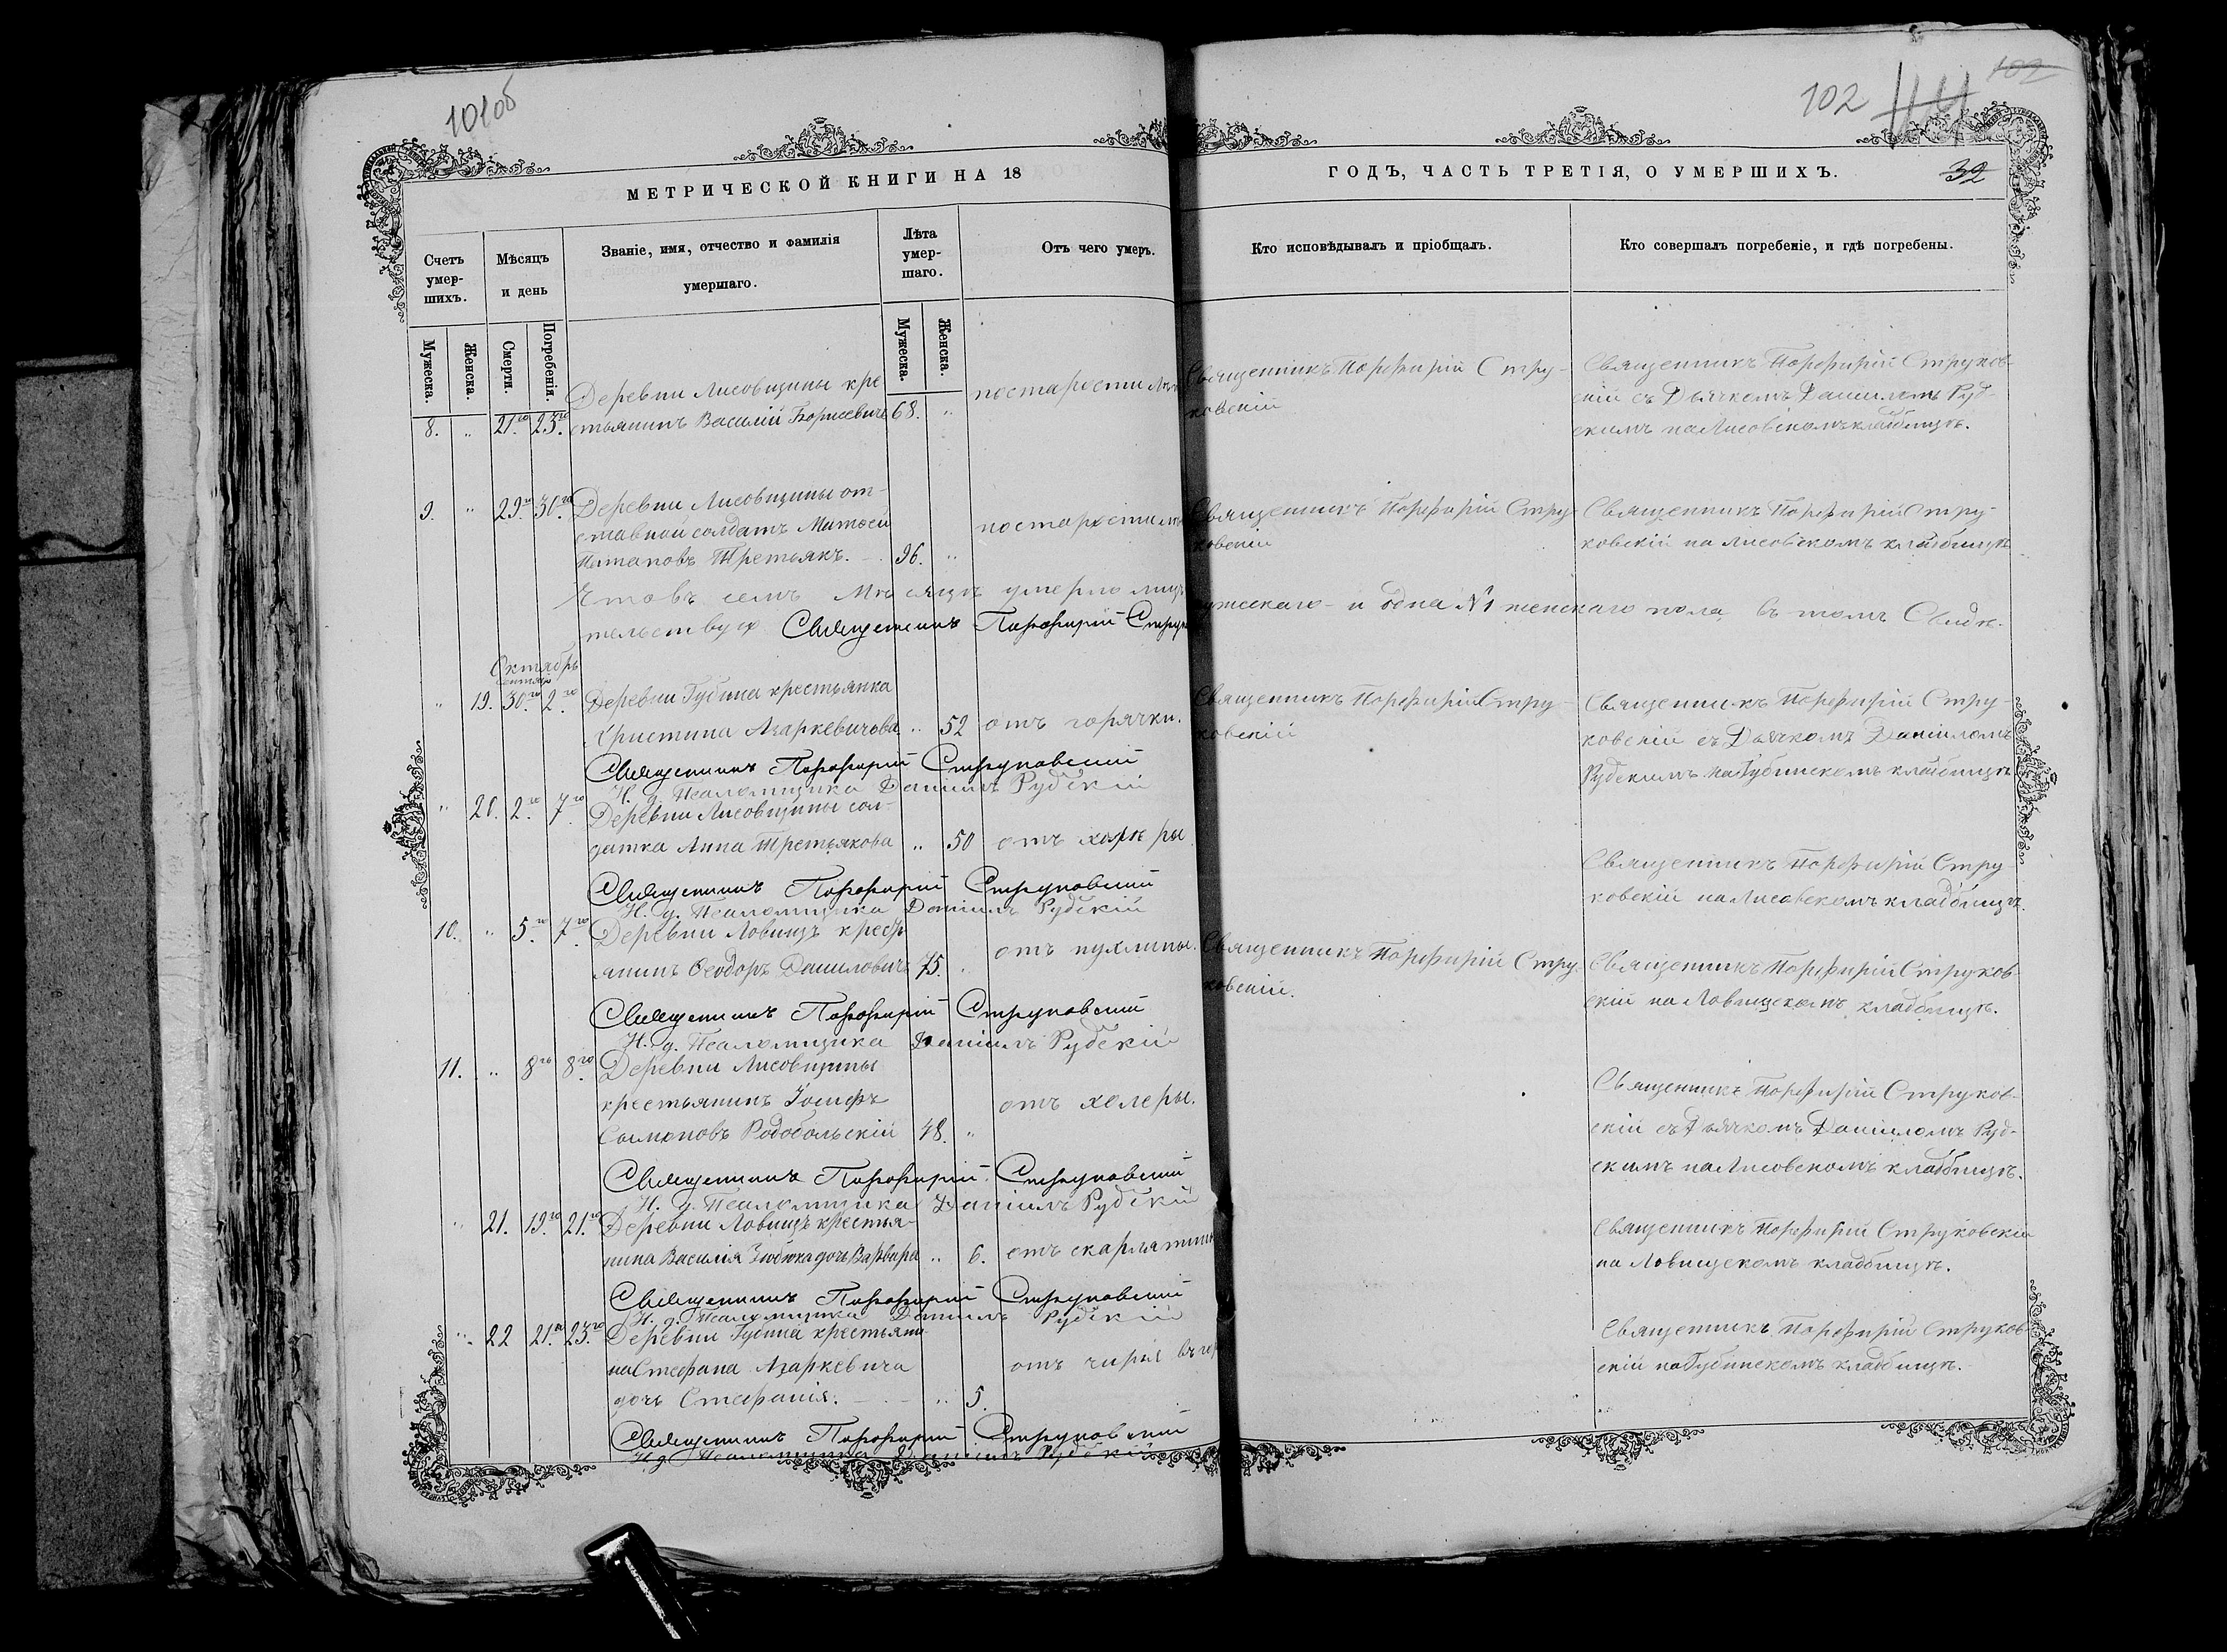 101об
102
102
114
МЕТРИЧЕСКОЙ КНИГИ НА 18
ГОДЪ, ЧАСТЬ ТРЕТІЯ, О УМЕРШИХЪ.
32
Счетъ умер-шихъ.
Мѣсяцъ и день
Званіе, имя, отчество и фамилія умершаго.
Лѣта умер-шаго.
Отъ чего умеръ.
Кто исповѣдывалъ и пріобщалъ.
Кто совершалъ погребеніе, и гдѣ погребены.
Мужеска.
Женска.
Смерти.
Погребенія.
Мужеска.
Женска.
Деревни Лисовщины кре
8. „ 21го 23го стьянинъ Василій Борисевичъ 68. „
по старости
Священникъ Порфирій Стру-
ковскій
Священникъ Порфирій Струков-
скій съ Дьячкомъ Даніиломъ Руд-
скимъ на Лисовскомъ кладбищѣ.
9. „ 29го 30го Деревни Лисовщины от-
ставной солдатъ
Потаповъ Третьякъ. 96. „
по старости
Священникъ Порфирій Стру-
ковскій
Священникъ Порфирій Стру-
ковскій на Лисовскомъ кладбищѣ
Что въ семъ Мѣсяцѣ умерло
мужескаго и одна №1 женскаго пола, въ томъ Свидѣ-
тельствую Священникъ Порфирій
Октябрь
„ 19. 30го 2го Деревни Губина крестьянка
Христина Азаркевичова „ 52 отъ горячки.
Священникъ Порфирій Стру-
ковскій
Священникъ Порфирій Стру-
ковскій съ Дьячкомъ Даніиломъ
Рудскимъ на Губинскомъ кладбищѣ
Священникъ Порфирій Струковскій
И. д. Псаломщика Даніилъ Рудскій
„ 20. 2го 7го Деревни Лисовщины сол-
датка Анна Третьякова „ 50 отъ холеры
Священникъ Порфирій Стру-
ковскій на Лисовскомъ кладбищѣ.
Священникъ Порфирій Струковскій
И. д. Псаломщика Даніилъ Рудскій
10. „ 5го 7го Деревни Ловищъ кресть
янинъ Ѳеодоръ Даниловичъ 75. „
отъ пухлины.
Священникъ Порфирій Стру-
ковскій.
Священникъ Порфирій Струков-
скій на Ловищскомъ кладбищѣ.
Священникъ Порфирій Струковскій
И. д. Псаломщика Даніилъ Рудскій
11. „ 8го 8го Деревни Лисовщины
крестьянинъ Іосифъ
Родобольскій 48. „
отъ холеры.
Священникъ Порфирій Струков-
скій съ Дьячкомъ Даніиломъ Руд-
скимъ на Лисовскомъ кладбищѣ.
Священникъ Порфирій Струковскій
И. д. Псаломщика Даніилъ Рудскій
„ 21. 19го 21го Деревни Ловищъ крестья-
нина Василія дочь Варвара „ 6. отъ скарлатины
Священникъ Порфирій Струковскій
на Ловищскомъ кладбищѣ.
Священникъ Порфирій Струковскій
И. д. Псаломщика Даніилъ Рудскій
„ 22 21го 23го Деревни Губина крестьяни-
на Стефана Азаркевича
дочь Стефанія. „ 5.
отъ чирья въ
Священникъ Порфирій Струков-
скій на Губинскомъ кладбищѣ.
Священникъ Порфирій Струковскій
И. д. Псаломщика Даніилъ Рудскій